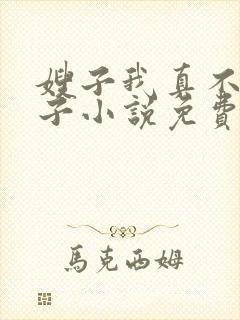 嫂子我真不
子小说免費
馬克西姆